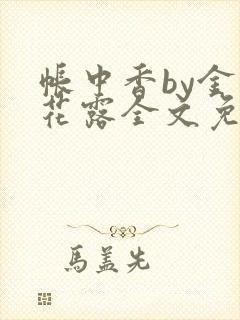 帳中香by金
花露全文免
馬蓋先